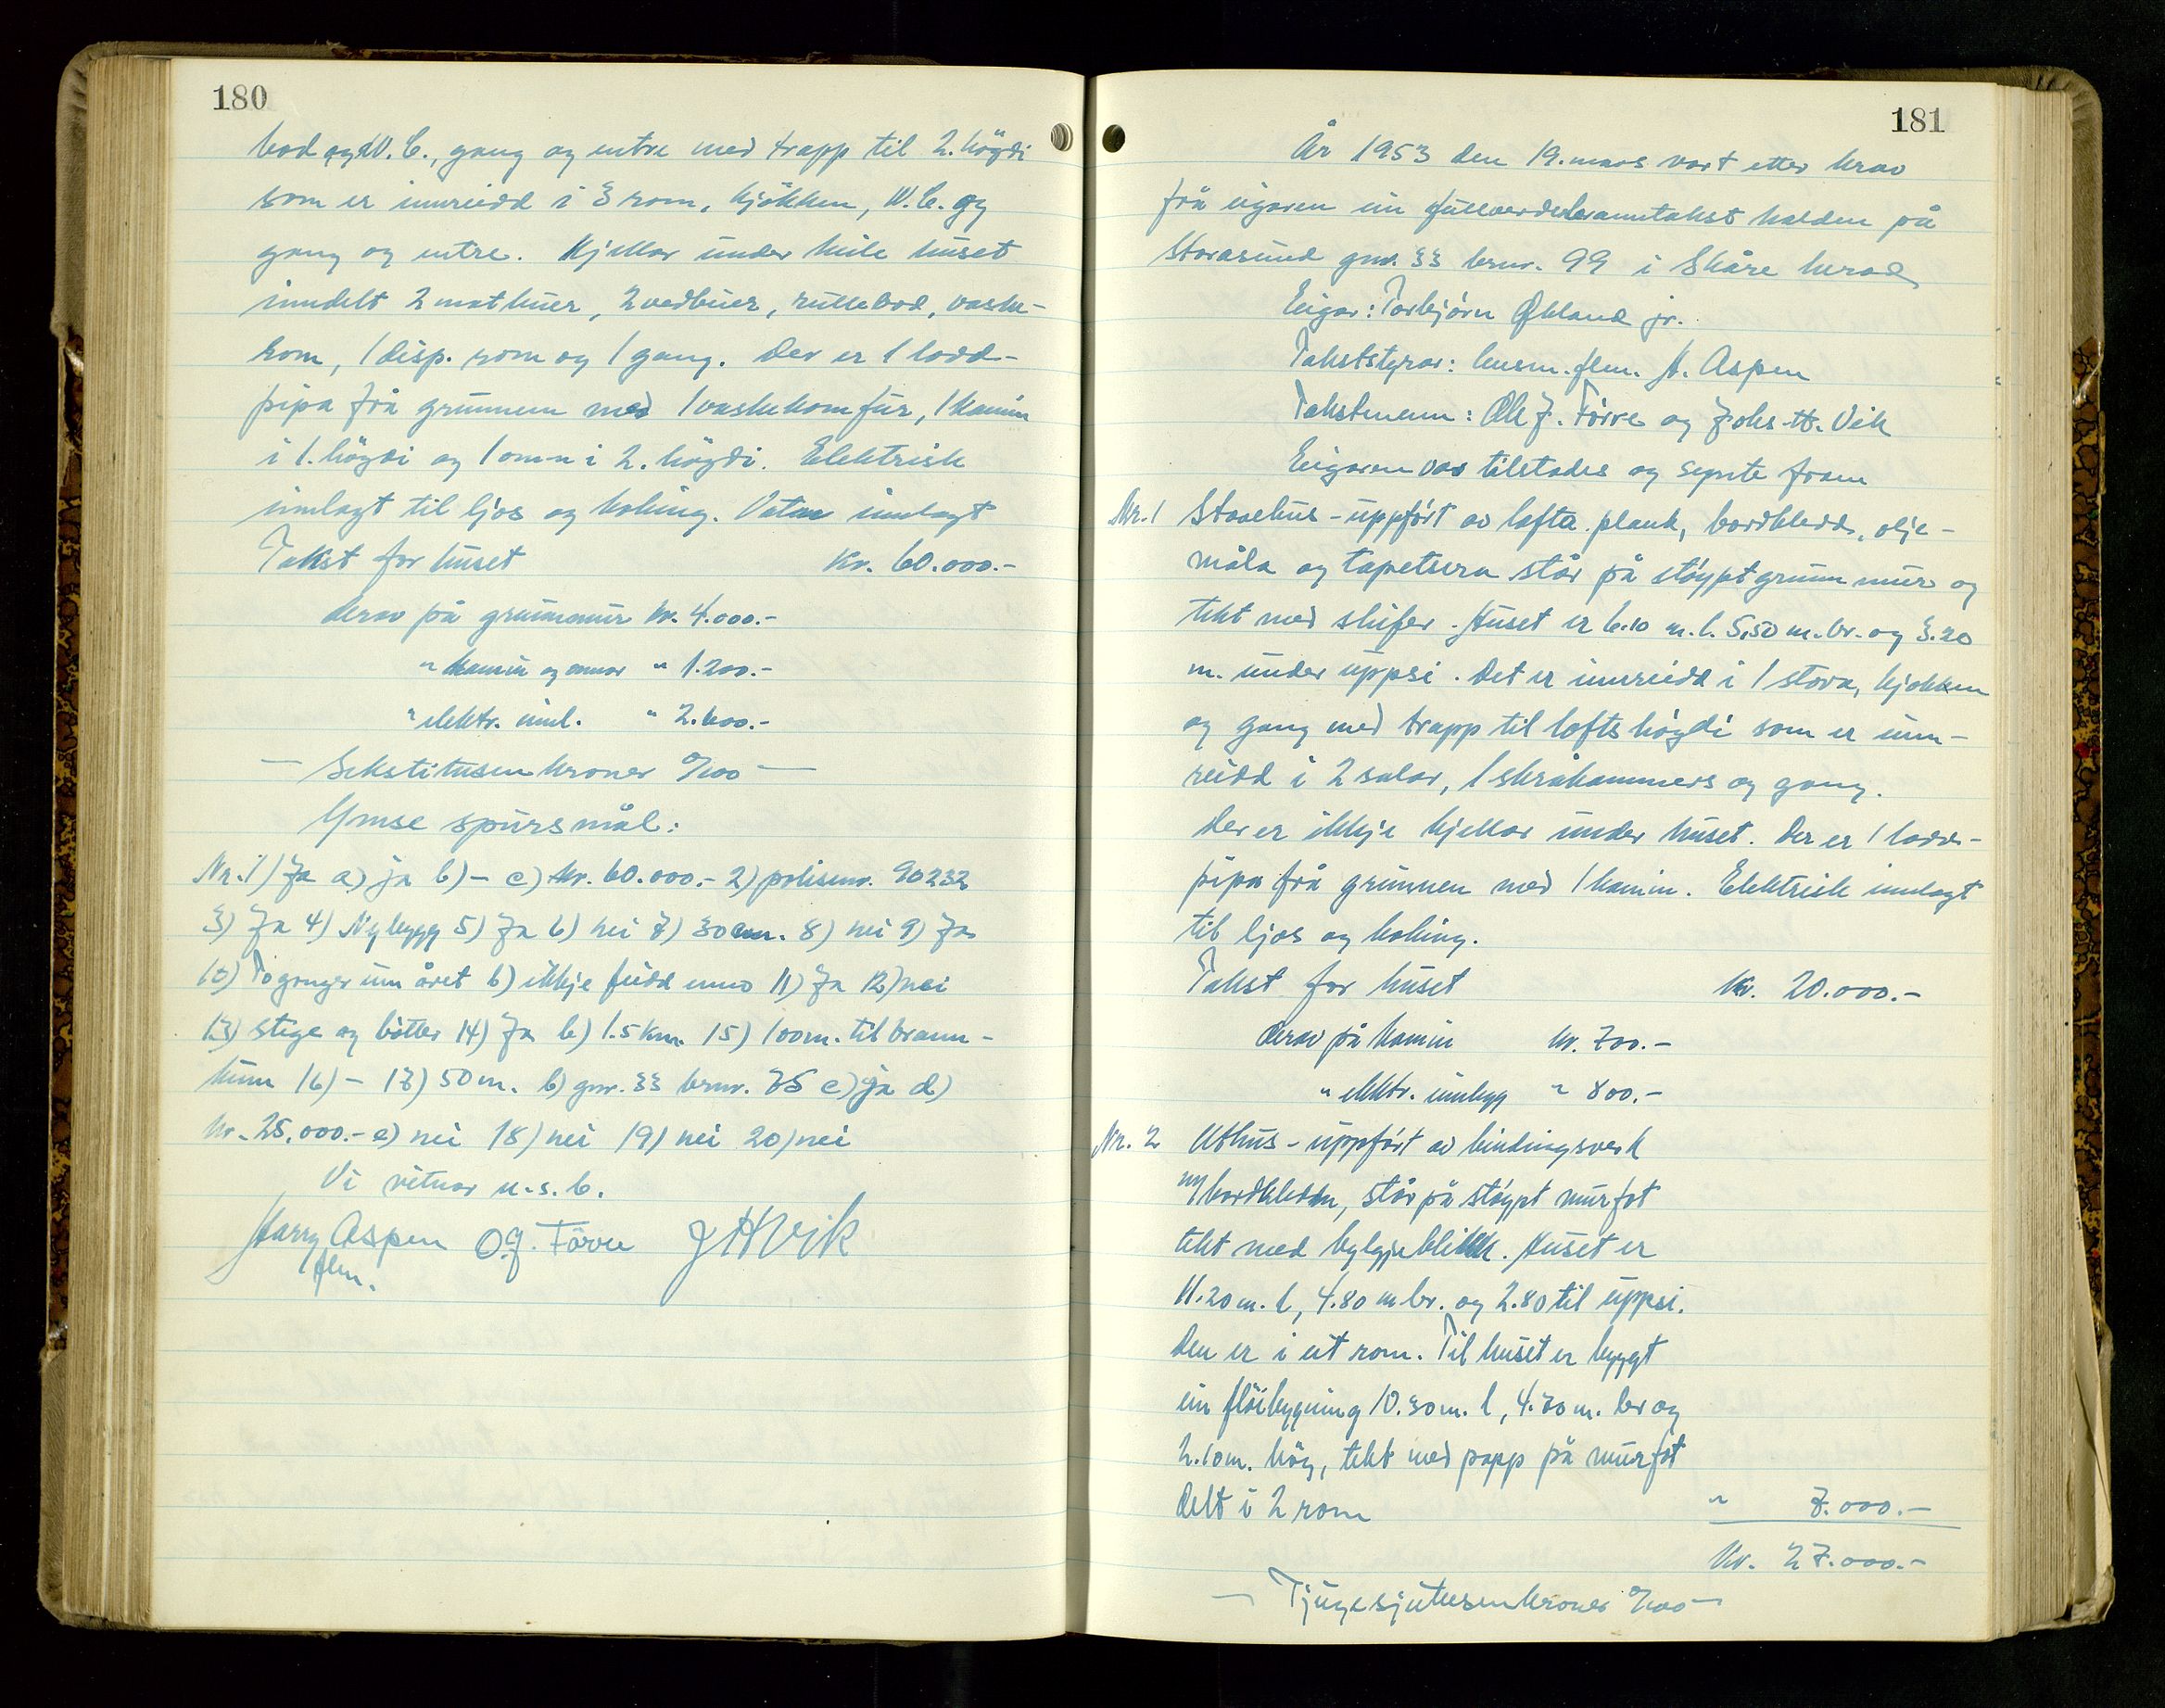 180
bod og W.C., gang og entre med trapp til 2. högdi
som er innreidd i 3 rom, kjökken, W.C. og
gang og entre. Kjellar under heile huset
inndelt 2 matbuer, 2 vedbuer, rullebod, vaske-
rom, 1 disp. rom og 1 gang. Der er 1 lodd-
pipa frå grunnen med 1 vaskekomfur, 1 kamin
i 1. högdi og 1 omn i 2. högdi. Elektrisk
innlagt til ljos og koking. Vatn innlagt
Takst for huset kr. 60.000.-
derav på grunnmur kr. 4.000.-
" kamin og omnar " 1.200.-
" elektr. innl. " 2.600.-
— Sekstitusen kroner 0/100 —
Ymse spursmål:
Nr. 1) Ja a) ja b) - c) kr. 60.000.- 2) polisenr. 90232
3) Ja 4) Nybygg 5) Ja 6) nei 7) 30 cm. 8) nei 9) Ja
10) To gonger um året b) ikkje feidd enno 11) Ja 12) nei
13) stige og bötter 14) Ja b) 1.5 km. 15) 100 m. til brann-
kum 16) - 17) 50 m. b) gnr. 33 brnr. 75 c) ja d)
kr. 25.000.- e) nei 18) nei 19) nei 20) nei
Vi vitnar u.s.b.
Harry Aspen O.J. Förre J H Vik
flm.
181
År 1953 den 19. mars vart etter krav
frå eigaren ein fullverdebranntakst halden på
Storasund gnr. 33 brnr. 99 i Skåre herad
Eigar: Torbjørn Økland jr.
Takststyrar: lensm. flm. H. Aspen
Takstmenn: Ole J. Förre og Johs. H. Vik
Eigaren var tilstades og synte fram
Nr. 1 Stovehus - uppfört av lafta plank, bordkledd, olje-
måla og tapetsera står på stöypt grunnmur og
tekt med skifer. Huset er 6.10 m. l. 5,50 m. br. og 3.20
m. under uppsi. Det er innreidd i 1 stova, kjökken
og gang med trapp til loftshögdi som er inn-
reidd i 2 salar, 1 skråkammers og gang.
Der er ikkje kjellar under huset. Der er 1 lodd-
pipa frå grunnen med 1 kamin. Elektrisk innlagt
til ljos og koking.
Takst for huset kr. 20.000.-
derav på kamin kr. 700.-
" elektr. innlegg " 800.-
Nr. 2 Uthus - uppfört av bindingsverk
m/bordkledn, står på stöypt murfot
tekt med bylgjeblikk. Huset er
11.20 m. l, 4.80 m br. og 2.80 til uppsi.
Den er i eit rom. Til huset er byggt
ein flöibygning 10.30 m. l, 4.70 m. br og
2.10 m. hög, tekt med papp på murfot
delt i 2 rom " 7.000.-
kr. 27.000.-
— Tjugesjutusenkroner 0/100 —